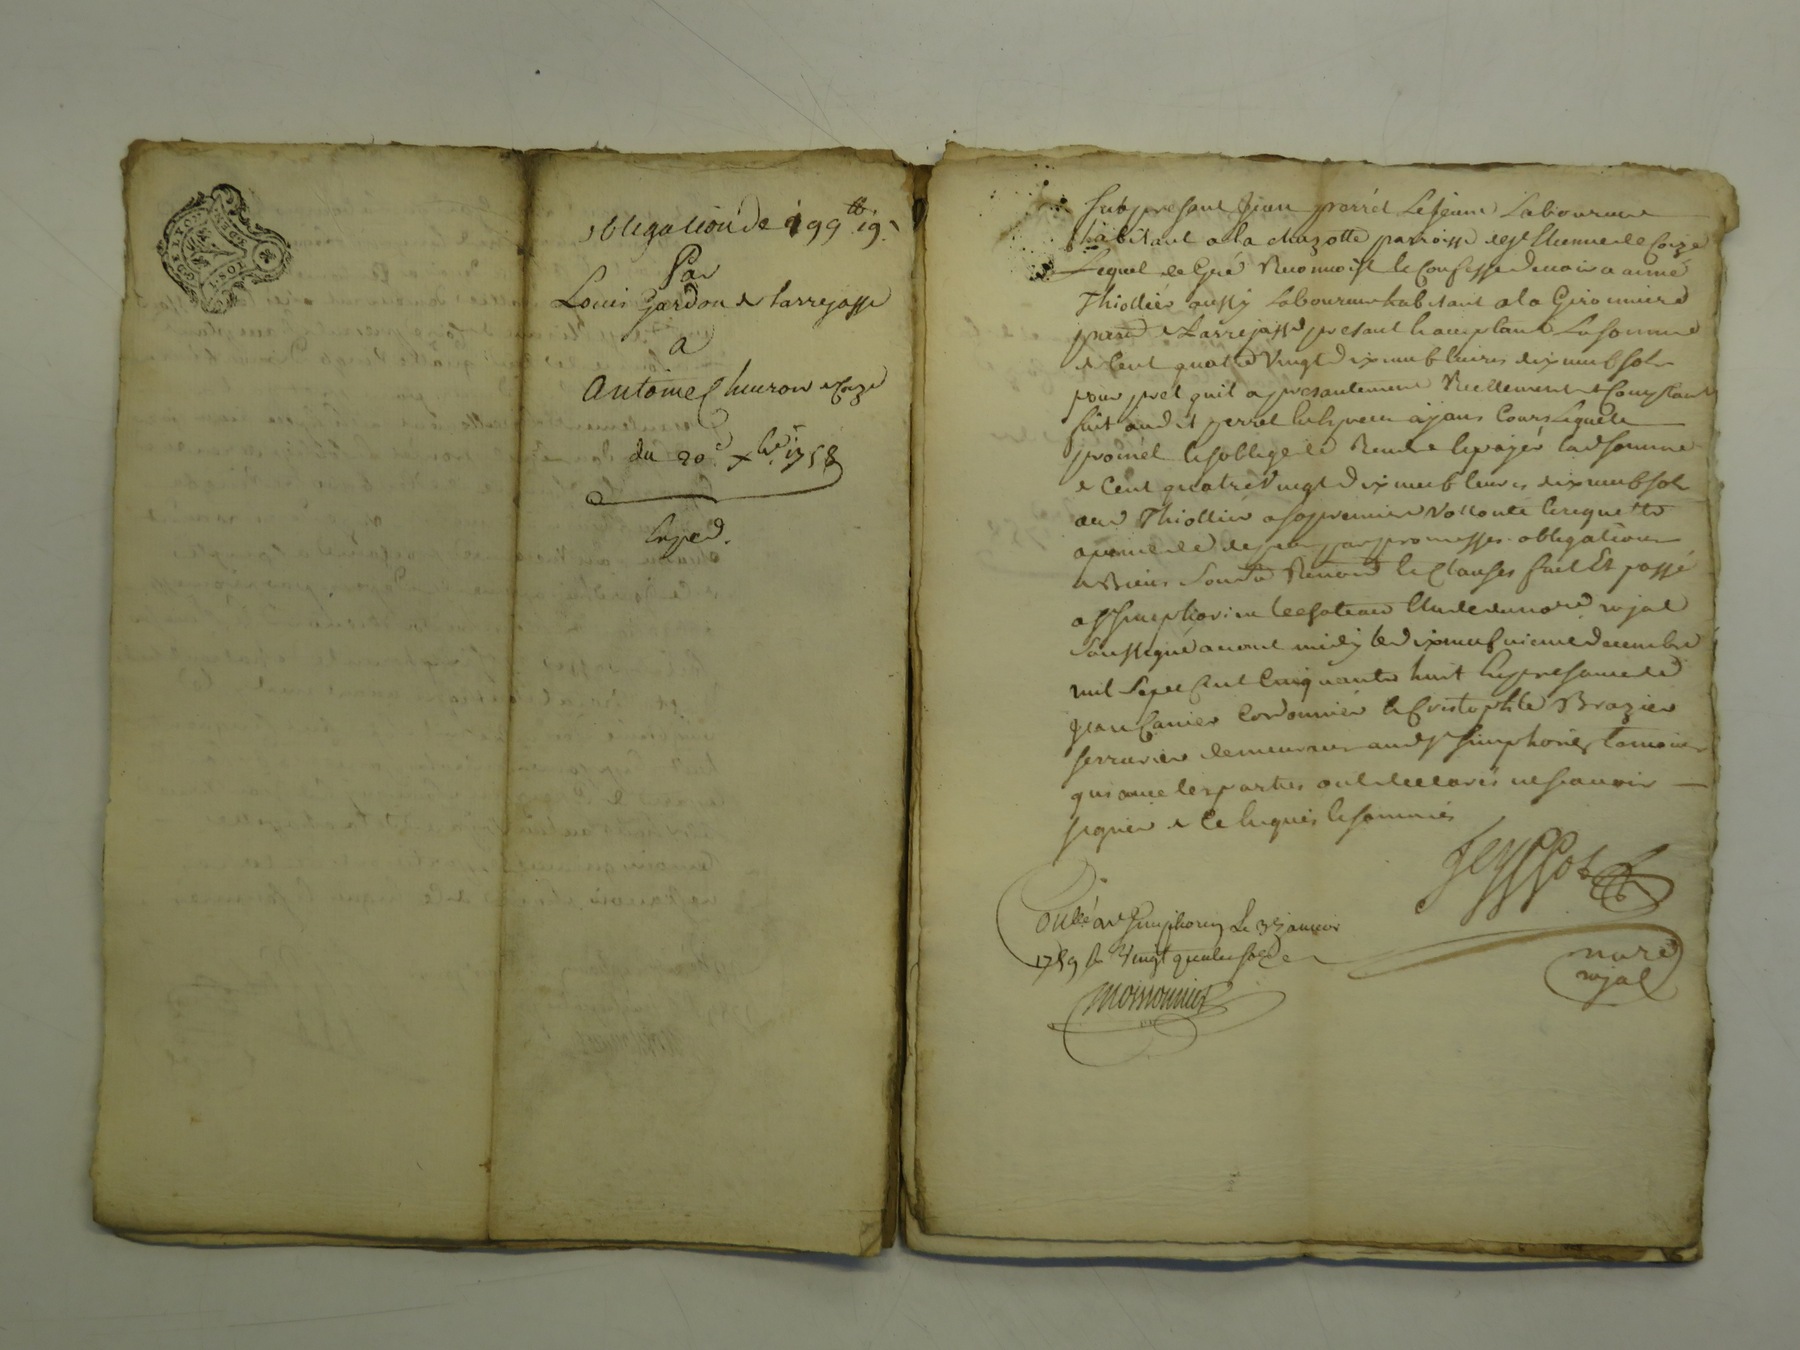 GNRLT LYON
obligation de 199tt 19s
Par
Louis Gardon de Larrejasse
a
Antoine Cheuron de Coize
du 20e xbre 1758
Exped.
fut present Jean perret Le Jeune Laboureur
habitant a la chazotte parroisse de st Etienne de Coize
Lequel de Gré Reconnoist et Confesse devoir a aimé
Thiollier aussy Laboureur habitant a la Gironniere
parr. de Larrejasse present et acceptant La somme
de Cent quatre Vingt dix neuf livres dix neuf sols
pour pret quil a presentement Reellement et Comptant
fait audit perret En Especes ajant Cours Laquelle
promet et soblige de Rendre et payer lad. somme
de Cent quatre Vingt dix neuf livres dix neuf sols
aud. Thiollier a sa premiere Volonté et requette
a peine de depens par promesses obligation
de Biens Soum. Renon. et Clauses fait Et passé
a st Simphorien le chateau Etude du nore rojal
Soussigné avant midy le dix neufvieme decembre
mil Sept Cent Cinquante huit En presence de
Jean Canier Cordonnier et Cristophle Brazier
serrurier demeurant aud. st Simphorien temoins
qui avec les parties ont declarés ne scavoir
signer de Ce Enquis et sommés
nore
rojal
Con.llé a st Simphorien Le 3e janvier
1759 R. Vingt quatre sols
Moissonnier